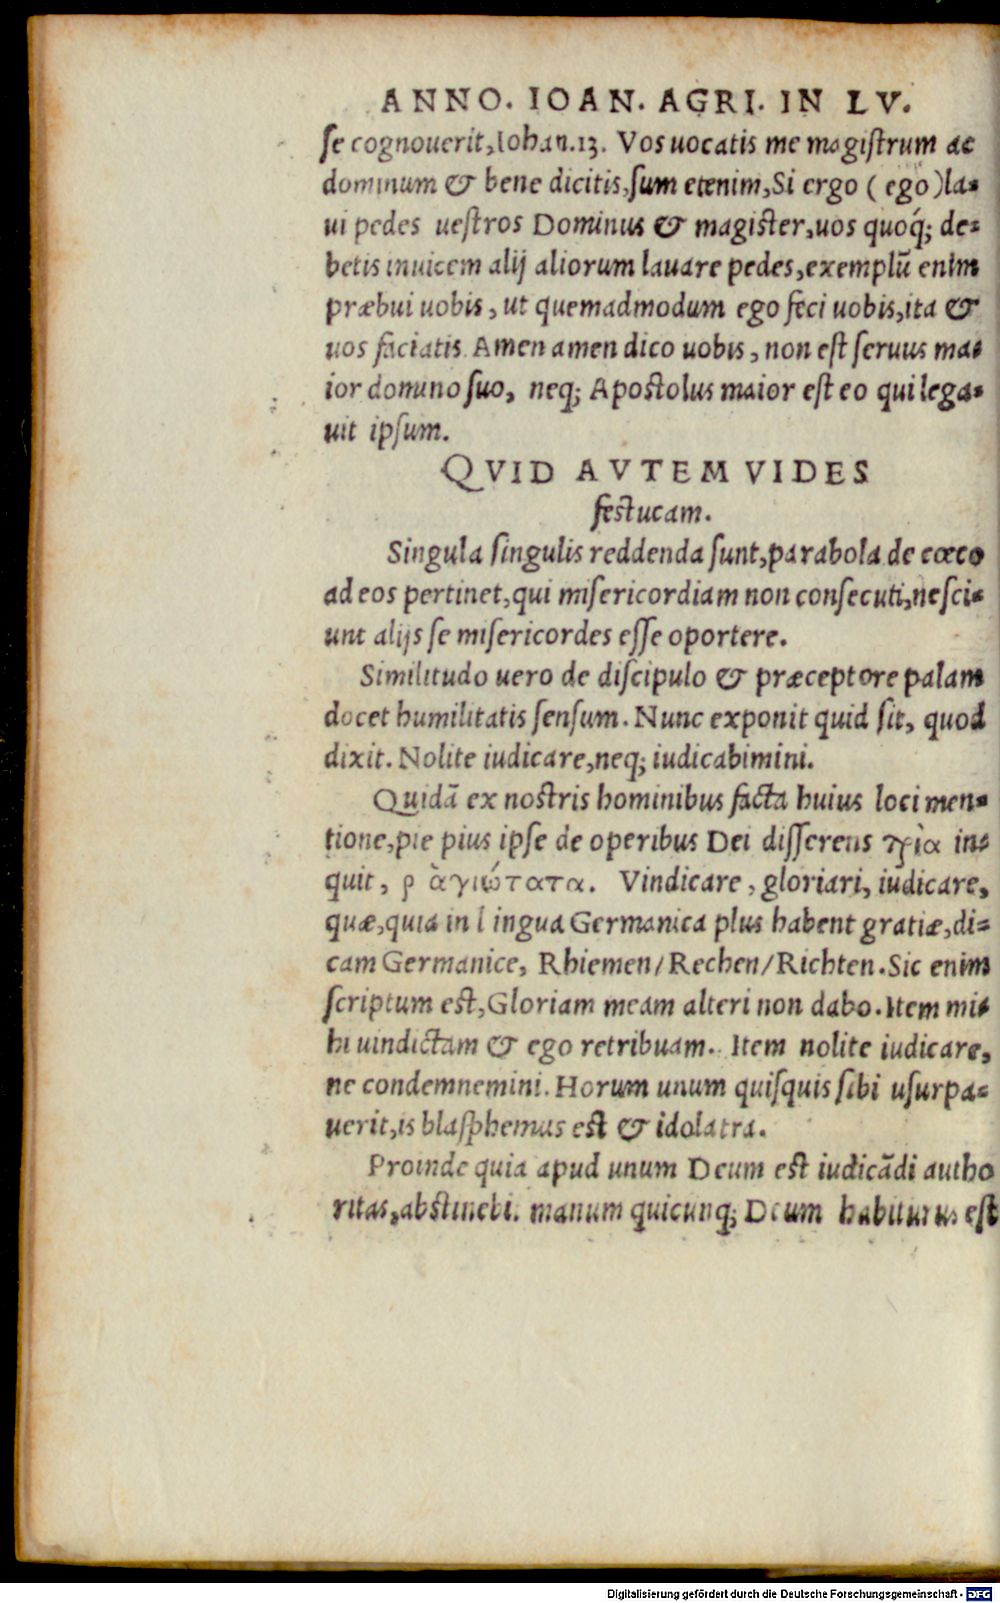 ANNO. IOAN. AGRI. IN LV.
se cognouerit, Iohan.13. Vos uocatis me magistrum ac
dominum & bene dicitis, sum etenim, Si ergo (ego) la-
ui pedes uestros Dominus & magister, uos quoq́; de-
betis inuicem alij aliorum lauare pedes, exemplũ enim
præbui uobis, ut quemadmodum ego feci uobis, ita &
uos faciatis. Amen amen dico uobis, non est seruus ma-
ior domino suo, neq; Apostolus maior est eo qui lega-
uit ipsum.
QVID AVTEM VIDES
festucam.
Singula singulis reddenda sunt, parabola de cœco
ad eos pertinet, qui misericordiam non consecuti, nesci-
unt alijs se misericordes esse oportere.
Similitudo uero de discipulo & præceptore palam
docet humilitatis sensum. Nunc exponit quid sit, quod
dixit. Nolite iudicare, neq; iudicabimini.
Quidã ex nostris hominibus facta huius loci men-
tione, pie pius ipse de operibus Dei disserens τρία in-
quit, ρ ἁγιώτατα. Vindicare, gloriari, iudicare,
quæ, quia in lingua Germanica plus habent gratiæ, di-
cam Germanice, Rhiemen/Rechen/Richten. Sic enim
scriptum est, Gloriam meam alteri non dabo. Item mi-
hi uindictam & ego retribuam. Item nolite iudicare,
ne condemnemini. Horum unum quisquis sibi usurpa-
uerit, is blasphemus est & idolatra.
Proinde quia apud unum Deum est iudicãdi autho
ritas, abstinebi. manum quicunq; Deum habiturus est
Digitalisierung gefördert durch die Deutsche Forschungsgemeinschaft - DFG